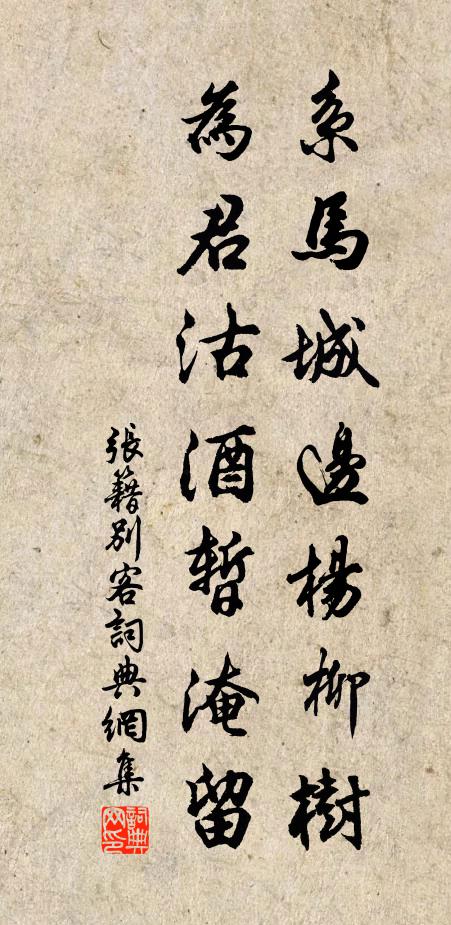 系馬城邊楊柳樹
為君沽酒暫淹留
張籍別客詞典網集
詞典網印